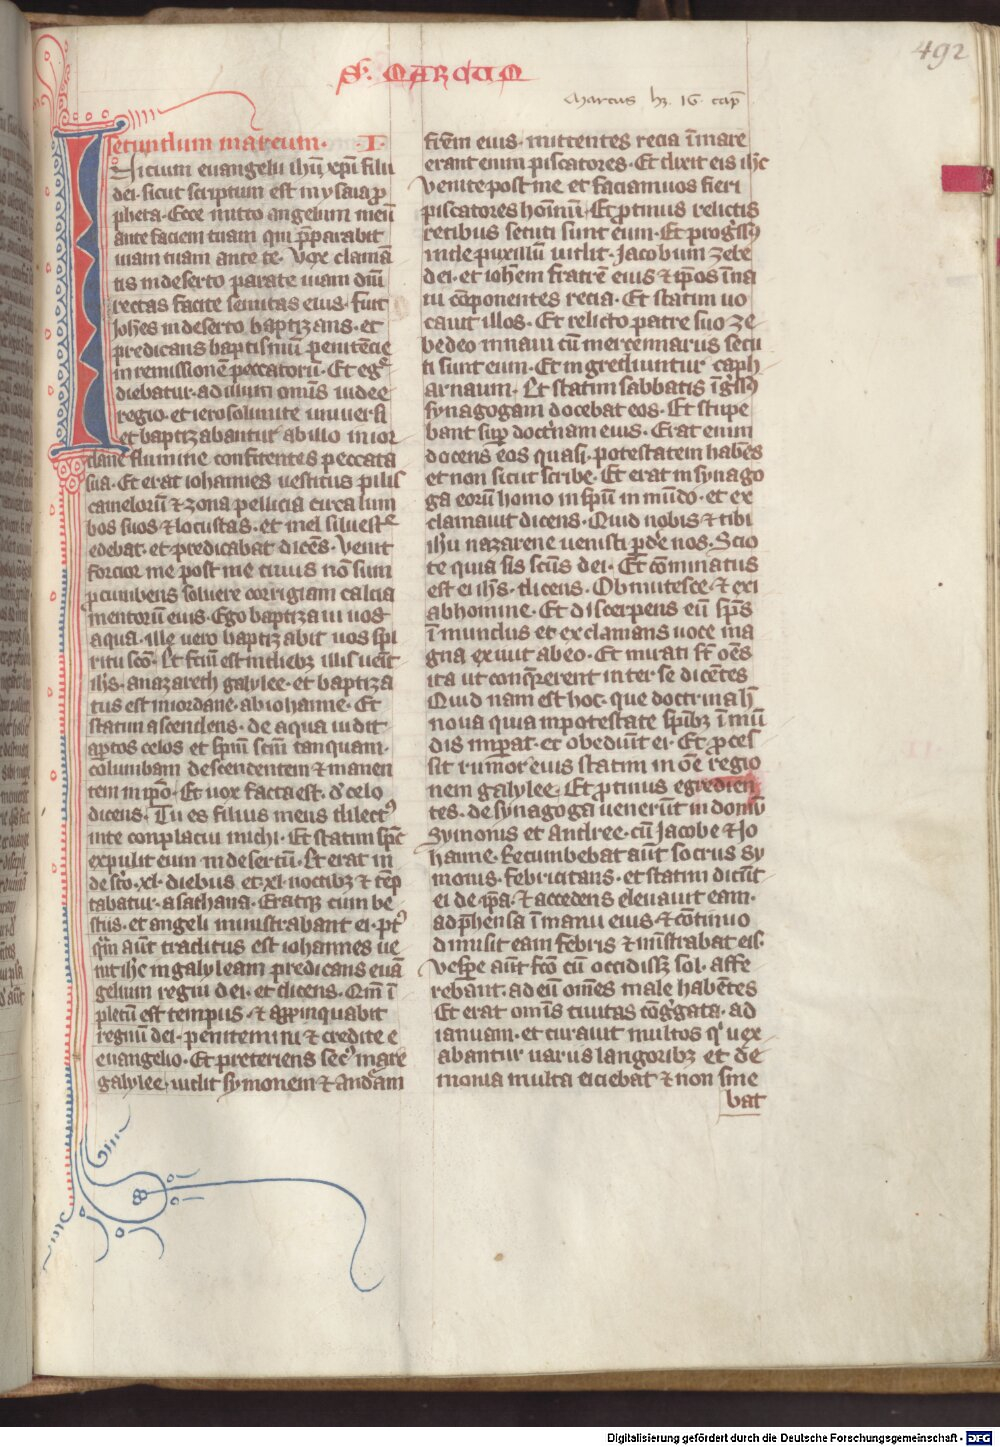 492
S. MARCUM
Marcus hz 16 cap
Secundum marcum. I.
Inicium euangelii ihū xpi filii
dei. sicut scriptum est in ysaia p̄
pheta. Ecce mitto angelum meū
ante faciem tuam qui p̄parabit
uiam tuam ante te. Vox clamā
tis in deserto parate uiam dn̄i
rectas facite semitas eius. fuit
Joh̄es in deserto baptizans. et
predicans baptismū penitēcie
in remissionē peccatorū. Et eg͛
diebatur. ad illum omīs iudee
regio. et ierosolimite uniuersi
et baptizabantur ab illo in ior
dane flumine confitentes peccata
sua. Et erat iohannes uestitus pilis
camelorū ⁊ zona pellicia circa lum
bos suos ⁊ locustas. et mel siluestͤ
edebat. et predicabat dicēs. Venit
forcior me post me cuius nō sum
p̄cumbens soluere corrigiam calcia
mentorū eius. Ego baptizaui uos
aqua. ille uero baptizabit uos sp̄i
ritu sc̄o. Et fc̄m est in diebꝫ illis uēit
ih̄s. a nazareth galylee. et baptiza
tus est in iordane. ab iohanne. Et
statim ascendens. de aqua uidit
ap̄tos celos et sp̄m sc̄m tanquam.
columbam descendentem ⁊ manen
tem in ip̄o. Et uox facta est. d̓ celo
dicens. Tu es filius meus dilectꝰ
in te conplacui michi. Et statim sp̄c
expulit eum in desertū. Et erat in
des̓to. xl. diebus et. xl. noctibꝫ ⁊ tēp
tabatur. a sathana. Eratqꝫ cum be
stiis. et angeli ministrabant ei. ptꝰ
q̄m aūt traditus est iohannes ue
nit ih̄c in galyleam predicans euā
gelium regni dei. et dicens. Qm̄ ī
pletū est tempus. ⁊ app̄inquabit
regnū dei. penitemini ⁊ credite e
euangelio. Et preteriens secꝰ mare
galylee. uidit symonem ⁊ andream
fr̄em eius. mittentes recia ī mare
erant enim piscatores. Et dixit eis ih̄c
Venite post me. et faciam uos fieri
piscatores hoīnū. Et p̄tinus relictis
retibus secuti sunt eum. Et p̄g̓ssꝰ
inde puxillū uidit. Jacobum zebe
dei. et ioh̄em fratrē eius ⁊ ip̄os ī na
ui cōponentes recia. Et statim uo
cauit illos. Et relicto patre suo ze
bedeo in naui cū mercennariis secu
ti sunt eum. Et ingrediuntur caph
arnaum. Et statim sabbatis īg̓ssꝰ
synagogam docebat eos. Et stupe
bant sup̄ doct̓nam eius. Erat enim
docens eos quasi. potestatem habēs
et non sicut scribe. Et erat in synago
ga eorū homo in sp̄u in mūdo. et ex
clamauit dicens. Quid nobis ⁊ tibi
ihū nazarene uenisti p̄d̓e nos. Scio
te quia sis sc̄us dei. Et cōminatus
est ei ih̄s. dicens. Obmutesce. ⁊ exi
ab homine. Et discerpens eū sp̄s
ī mundus et exclamans uoce ma
gna exiuit ab eo. Et mirati sf̄ oēs
ita ut conq̄rerent inter se dicētes
Quid nam est hoc. que doctrina h̄
noua quia in potestate sp̄ibꝫ ī mū
dis imp̄at. et obediūt ei. Et p̄ces
sit rumor eius statim in oēm regio
nem galylee. Et p̄tinus egredien
tes. de synagoga uenerūt in domū
Symonis et Andree. cū Jacobe ⁊ Jo
hanne. Recumbebat aūt socrus sy
monis. febricitans. et statim dicūt
ei de ip̄a. ⁊ accedens eleuauit eam.
ad p̄hensa ī manu eius ⁊ cōtinuo
dimisit eam febris ⁊ mīstrabat eis.
Vesp̄e aūt fc̄o cū occidissꝫ sol. affe
rebant. ad eū omēs male habētes
Et erat omīs ciuitas cōg̓gata. ad
ianuam. et curauit multos qͥ uex
abantur uariis langoribꝫ et de
monia multa eiciebat ⁊ non sine
bat
Digitalisierung gefördert durch die Deutsche Forschungsgemeinschaft - DFG